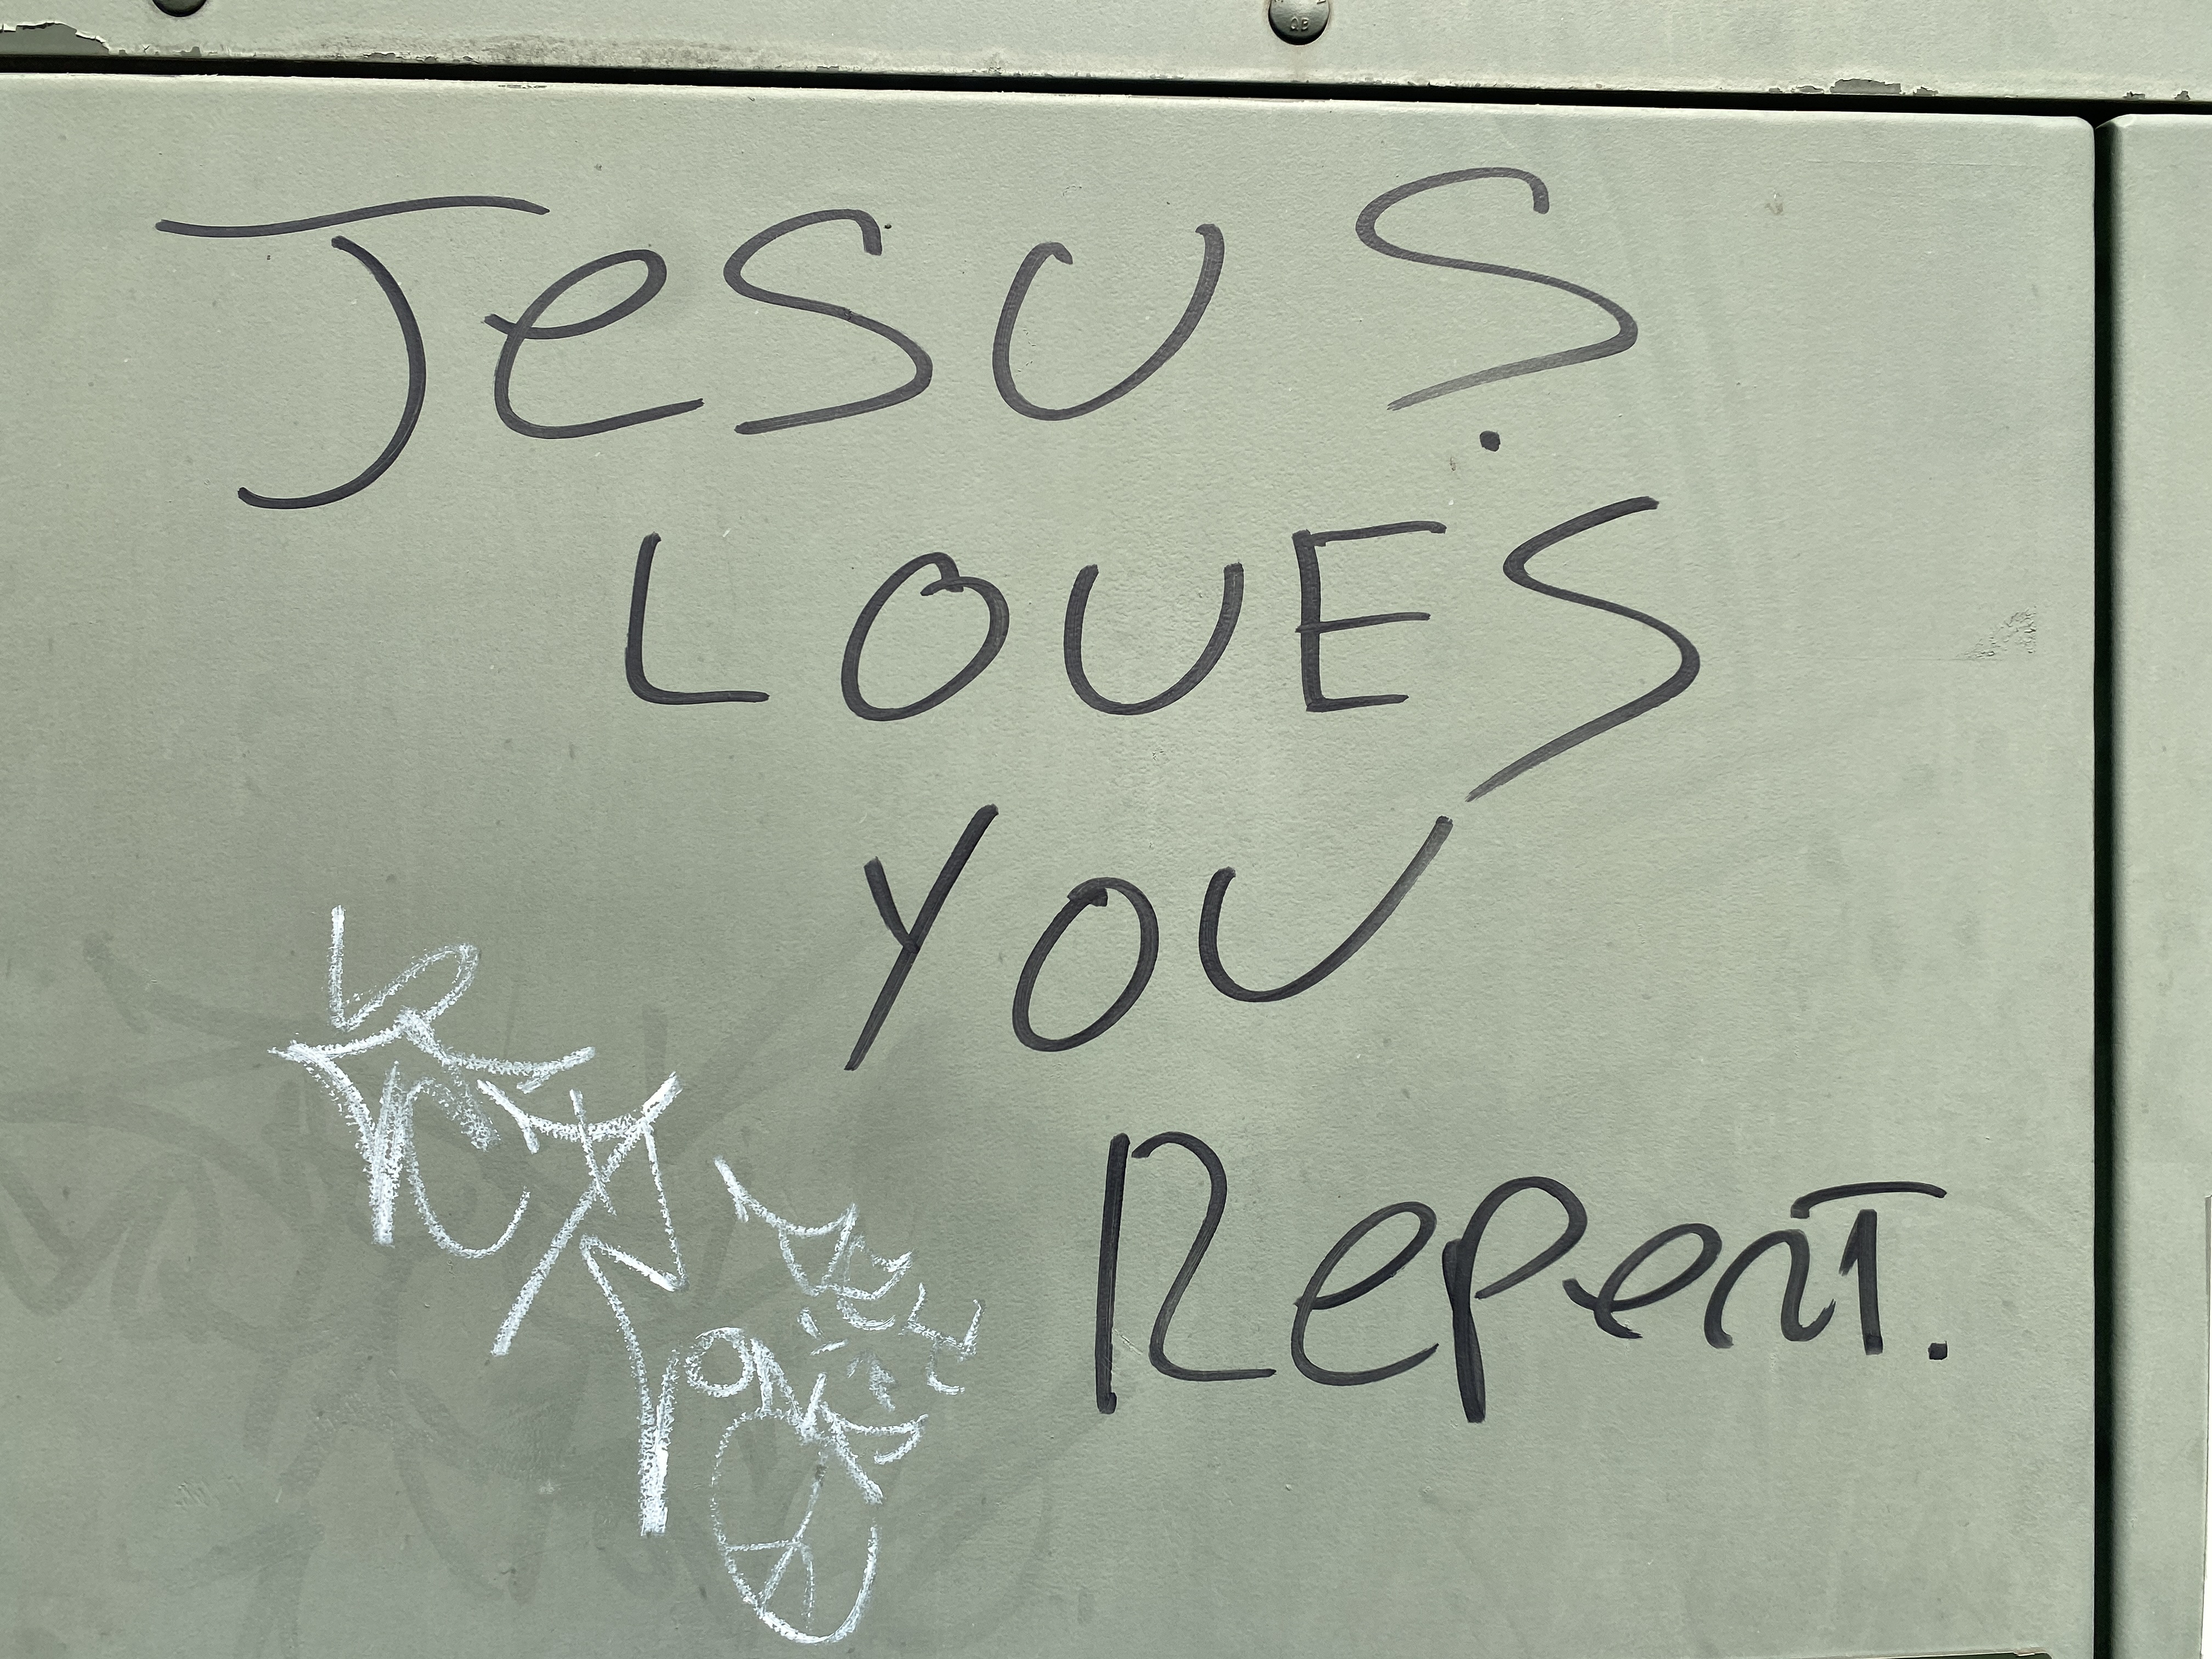 JeSUS.
LOVES
YOU
Repent.